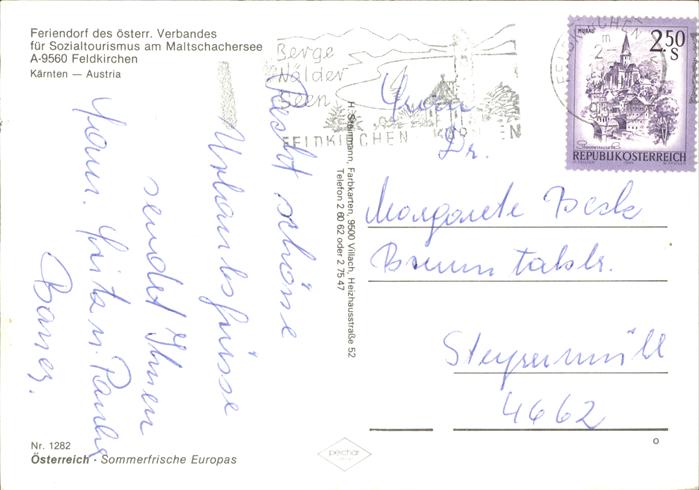 Feriendorf des österr. Verbandes
für Sozialtourismus am Maltschachersee
A-9560 Feldkirchen
Kärnten — Austria
Berge
Wälder
Seen
FELDKIRCHEN
MURAU
2.50
S
REPUBLIK ÖSTERREICH
Recht schöne
Urlaubsgrüsse
sendet Ihnen
Fam.
H. Steinmann, Farbkarten, 9500 Villach, Heizhausstraße 52
Telefon 2 60 62 oder 2 75 47
Frau
Dr.
Margarete Beck
Brunntalstr.
Steyrermühl
4662
Nr. 1282
Österreich · Sommerfrische Europas